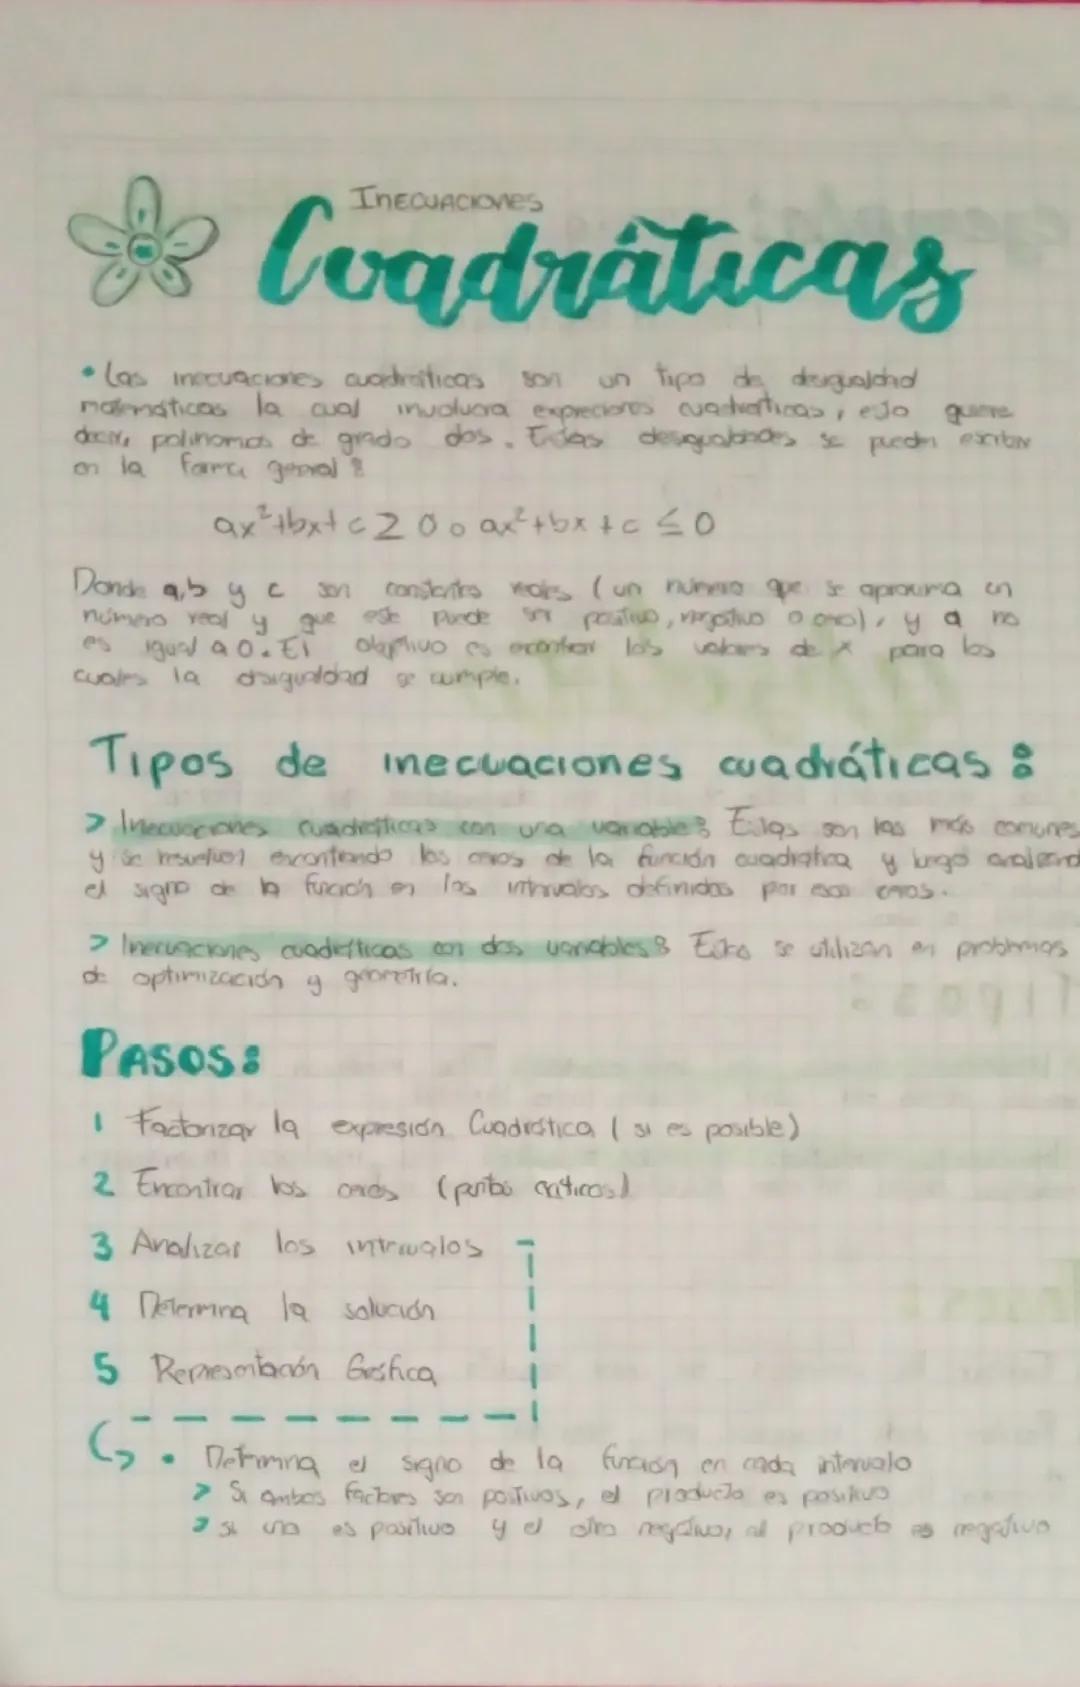 Inecuaciones
Cuadráticas
• Las inecuaciones cuadráticas son un tipo de desigualdad
matemáticas la cual involucra expreciones cuadraticas, esto quiere
decir, polinomios de grado dos. Estas desigualdades se pueden escribir
en la forma general:
ax²+bx+c ≥ 0 o ax²+bx+c ≤ 0
Donde a,b y c son constantes reales (un número que se aproxima en
número real y que este puede ser positivo, negativo o cero), y a no
es igual a 0. El objetivo es encontrar los valores de x para los
cuales la desigualdad se cumple.
Tipos de inecuaciones cuadráticas:
> Inecuaciones cuadráticas con una variable: Estas son las más comunes
y se resuelven encontrando los ceros de la función cuadrática y luego
el signo de la función en los intervalos definidos por esos ceros.
> Inecuaciones cuadráticas con dos variables: Estas se utilizan en problemas
de optimización y geometría.
PASOS:
1 Factorizar la expresión Cuadrática (si es posible)
2 Encontrar los ceros (puntos críticos)
3 Analizar los intervalos
4 Determina la solución
5 Representación Gráfica
• Determina el signo de la función en cada intervalo
> Si ambos factores son positivos, el producto es positivo
> si uno es positivo y el otro negativo, el producto es negativo